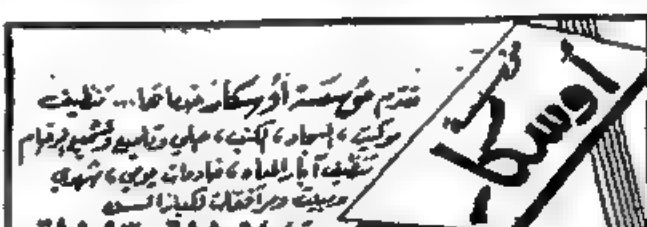 أوسكار
تقدم مؤسسة أوسكار خدماتها... تنظيف
موكيت، السجاد، الكنب، جلي وتلميع وتشميع الرخام
تنظيف آبار المياه، خادمات يومي، شهري
ومرافقات لكبار السن